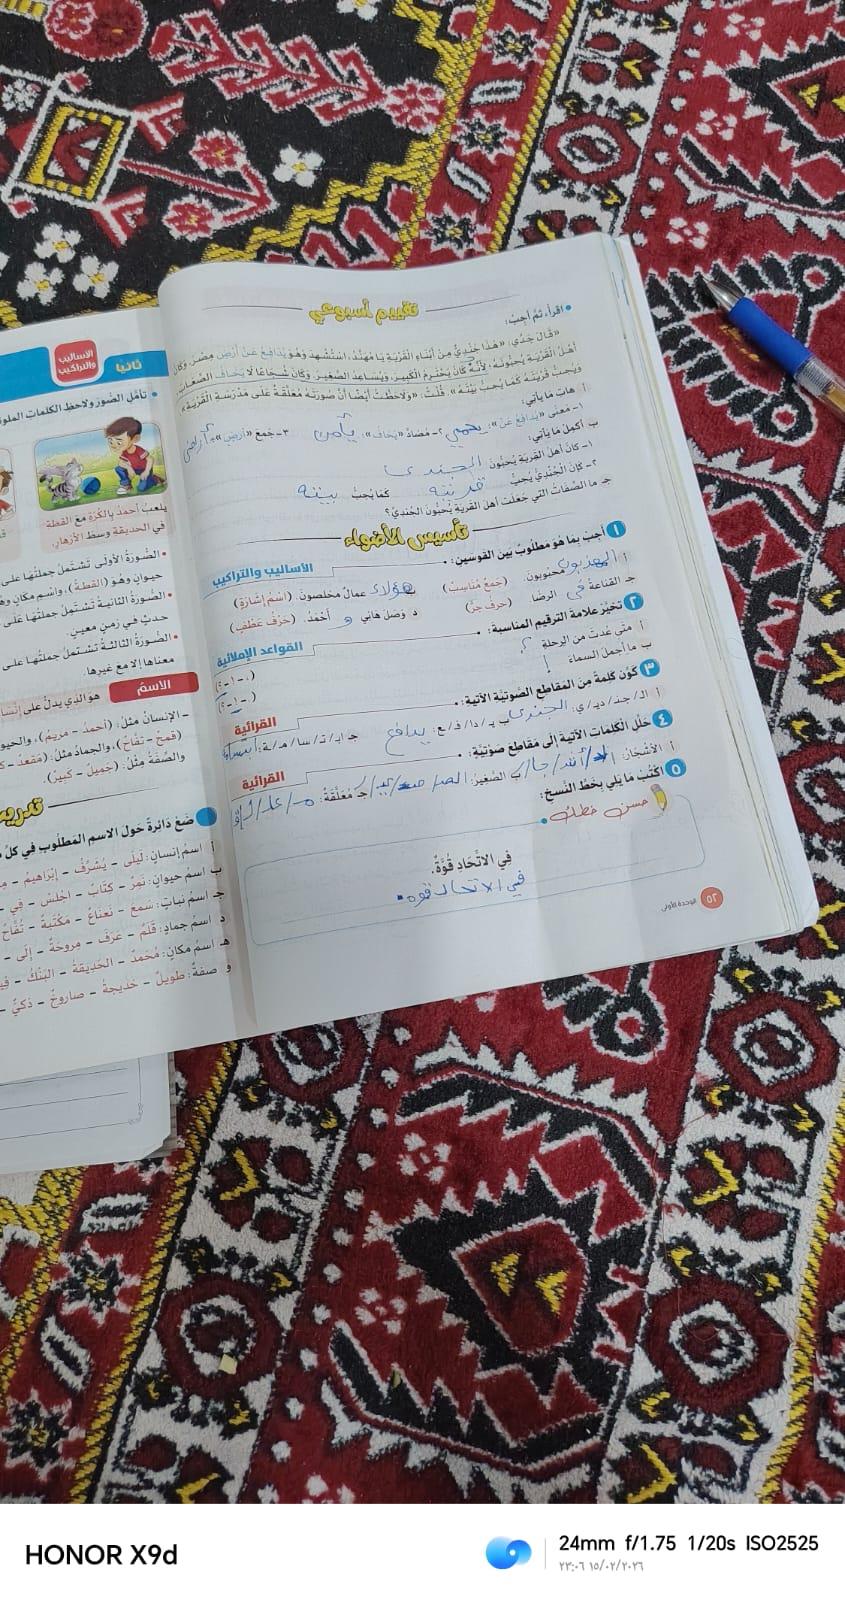 تقييم أسبوعي
اقرأ، ثم أجب:
«قال جدي: «هذا جندي من أبناء القرية يا مهند، استشهد وهو يدافع عن أرض مصر، وكان
أهل القرية يحبونه؛ لأنه كان يحترم الكبير، ويساعد الصغير، وكان شجاعًا لا يخاف الصعاب،
ويحب قريته كما يحب بيته»، قلت: «ولاحظت أيضًا أن صورته معلقة على مدرسة القرية»
أ هات ما يأتي:
١- معنى «يدافع عن»: يحمي ٢- مضاد «يخاف»: يأمن ٣- جمع «أرض»: أراضي
ب أكمل ما يأتي:
١- كان أهل القرية يحبون الجندى
٢- كان الجندي يحب قريته كما يحب بيته
جـ ما الصفات التي جعلت أهل القرية يحبون الجندي؟
تأسيس الأضواء
١ أجب بما هو مطلوب بين القوسين: الأساليب والتراكيب
أ محبوبون. (جمع مناسب) ب هؤلاء عمال مخلصون. (اسم إشارة)
جـ القناعة في الرضا. (حرف جر) د وصل هاني و أحمد. (حرف عطف)
٢ تخير علامة الترقيم المناسبة: القواعد الإملائية
أ متى عدت من الرحلة ؟
ب ما أجمل السماء !
٣ كون كلمة من المقاطع الصوتية الآتية: القرائية
أ الـ/ جنـ/ ديـ/ ي: الجندى ب يـ/ دا/ فـ/ ع: يدافع جـ ابـ/ تـ/ سا/ مـ/ ة:
٤ حلل الكلمات الآتية إلى مقاطع صوتية: القرائية
أ الأشجار: ب الصغير: جـ معلقة:
٥ اكتب ما يلي بخط النسخ:
حسن خطك
في الاتحاد قوة.
في الاتحاد قوه.
٥٢ الوحدة الأولى
ثانيًا الأساليب والتراكيب
• تأمل الصور ولاحظ الكلمات
يلعب أحمد بالكرة مع القطة
في الحديقة وسط الأزهار.
• الصورة الأولى تشتمل جملتها على
حيوان وهو (القطة)، واسم مكان
• الصورة الثانية تشتمل جملتها على
حدث في زمن معين.
• الصورة الثالثة تشتمل جملتها على
معناها إلا مع غيرها.
الاسم هو الذي يدل على
- الإنسان مثل: (أحمد - مريم)،
(قمح - تفاح)، والجماد مثل: (مقعد -
والصفة مثل: (جميل - كبير).
ضع دائرة حول الاسم المطلوب في
أ اسم إنسان: ليلى - يشرف - إبراهيم -
ب اسم حيوان: نمر - كتاب - اجلس - في -
جـ اسم نبات: سمع - نعناع - مكتبة - تفاح
د اسم جماد: قلم - عرف - مروحة - إلى -
هـ اسم مكان: محمد - الحديقة - البنك -
و صفة: طويل - خديجة - صاروخ - ذكي -
HONOR X9d
24mm f/1.75 1/20s ISO2525
٢٣:٠٦ ١٥/٠٢/٢٠٢٦